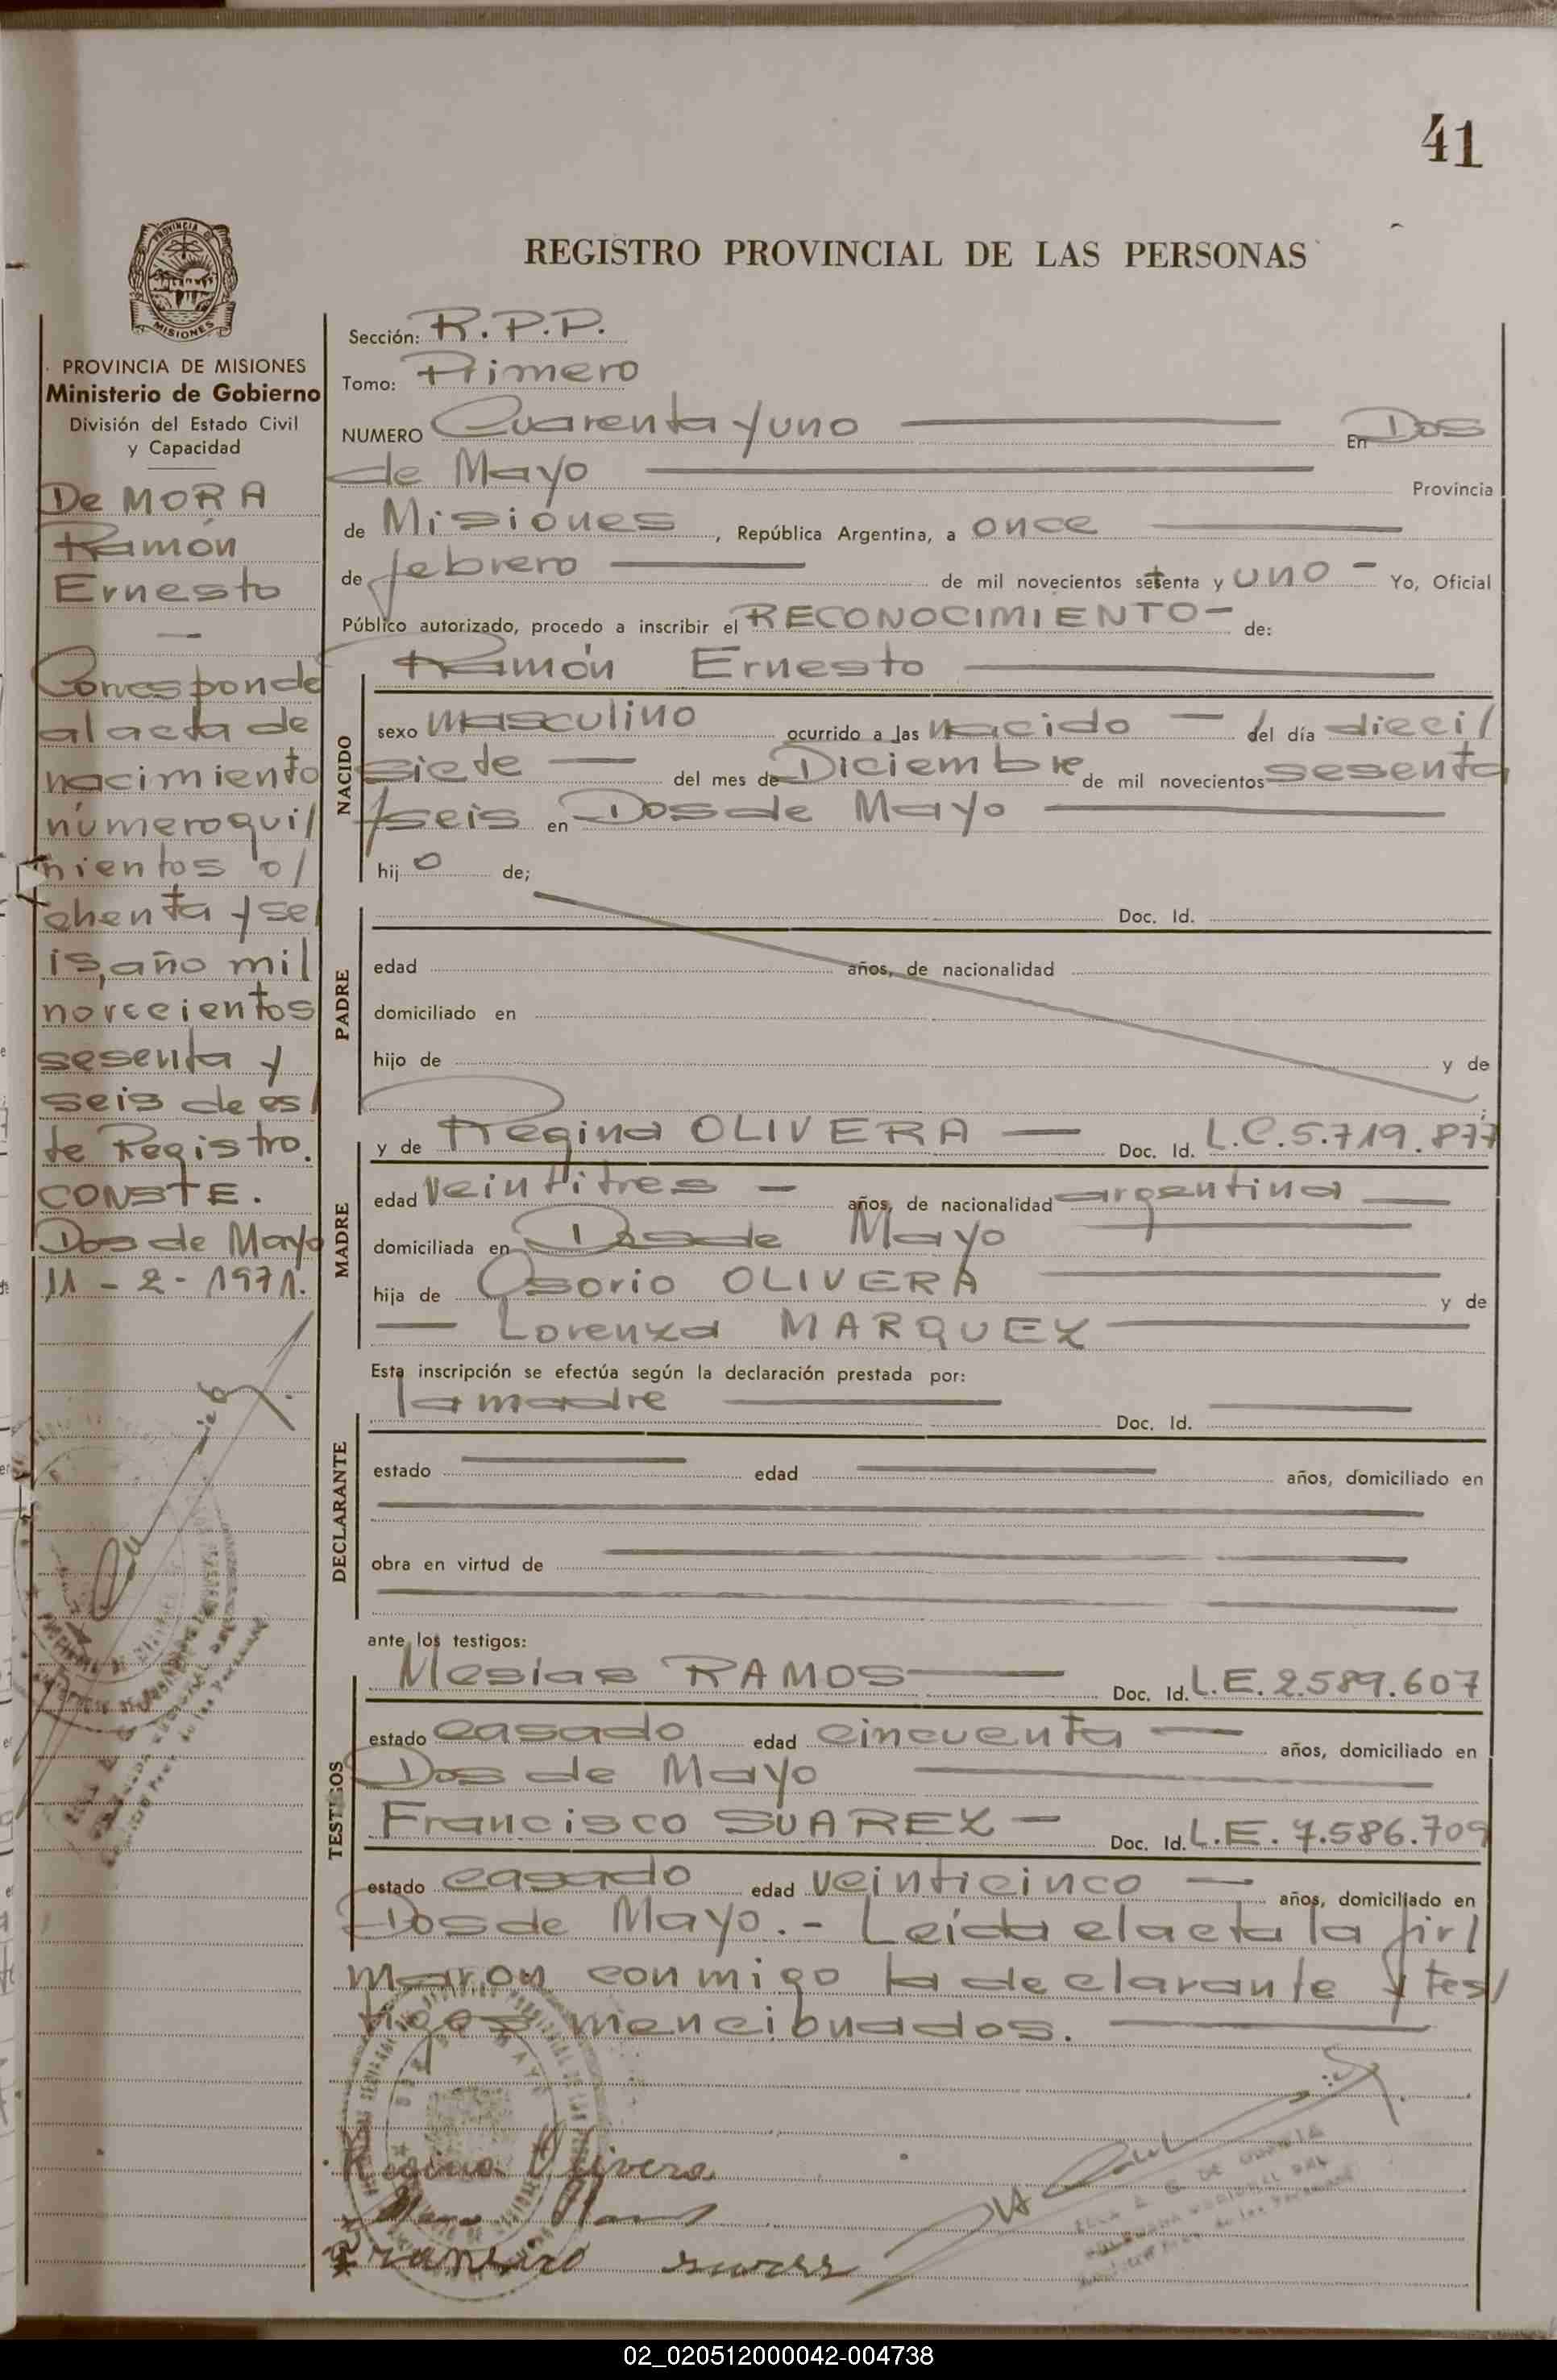 41
REGISTRO PROVINCIAL DE LAS PERSONAS
MISIONES
PROVINCIA DE MISIONES
Ministerio de Gobierno
División del Estado Civil
y Capacidad
De MORA
Ramón
Ernesto
Corresponde
al acta de
nacimiento
número qui/
nientos o/
chenta y se/
is, año mil
novecientos
sesenta y
seis de es/
te Registro.
CONSTE.
Dos de Mayo
11 - 2 - 1971.
Sección: R.P.P.
Tomo: Primero
NUMERO Cuarenta y uno En Dos
de Mayo Provincia
de Misiones, República Argentina, a once
de febrero de mil novecientos setenta y uno - Yo, Oficial
Público autorizado, procedo a inscribir el RECONOCIMIENTO - de:
Ramón Ernesto
NACIDO
sexo masculino ocurrido a las nacido - del día dieci/
siete - del mes de Diciembre de mil novecientos sesenta
y seis en Dos de Mayo
hij o de;
PADRE
Doc. Id.
edad años, de nacionalidad
domiciliado en
hijo de y de
MADRE
y de Regina OLIVERA - Doc. Id. L.C. 5.719.877
edad veintitres - años, de nacionalidad argentina
domiciliada en Dos de Mayo
hija de Osorio OLIVERA y de
Lorenza MARQUEZ
Esta inscripción se efectúa según la declaración prestada por:
DECLARANTE
la madre Doc. Id.
estado edad años, domiciliado en
obra en virtud de
ante los testigos:
TESTIGOS
Mesias RAMOS Doc. Id. L.E. 2.589.607
estado casado edad cincuenta - años, domiciliado en
Dos de Mayo
Francisco SUAREZ - Doc. Id. L.E. 7.586.709
estado casado edad veinticinco - años, domiciliado en
Dos de Mayo. - Leída el acta la fir/
maron conmigo la declarante y tes/
tigos mencionados.
Regina Olivera
02_020512000042-004738